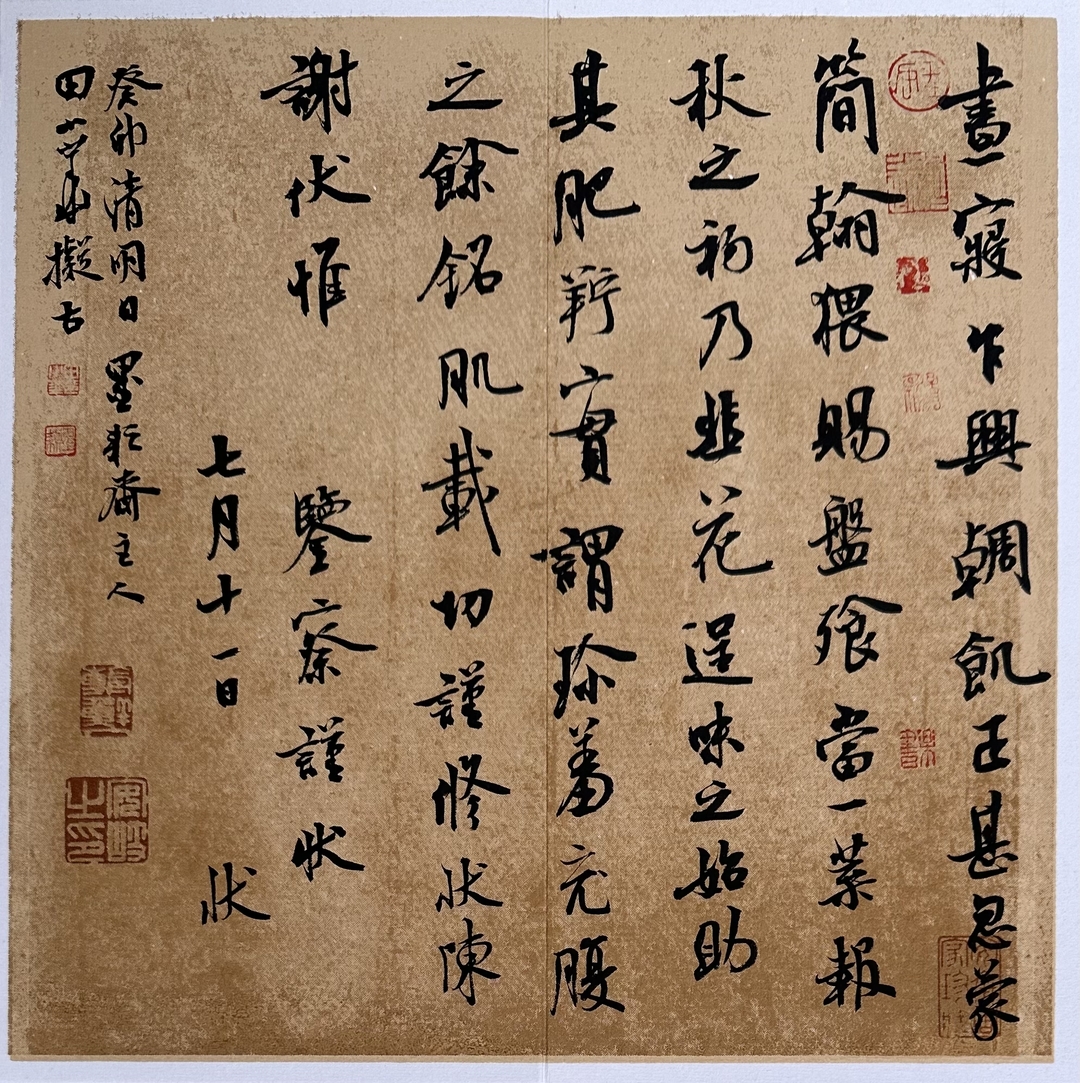 晝寢乍興輖飢正甚忽蒙
簡翰猥賜盤飧當一葉報
秋之初乃韭花逞味之始助
其肥羜實謂珍羞充腹
之餘銘肌載切謹脩狀陳
謝伏惟 鑒察謹狀
七月十一日 狀
癸卯清明日墨齋主人
田擬古